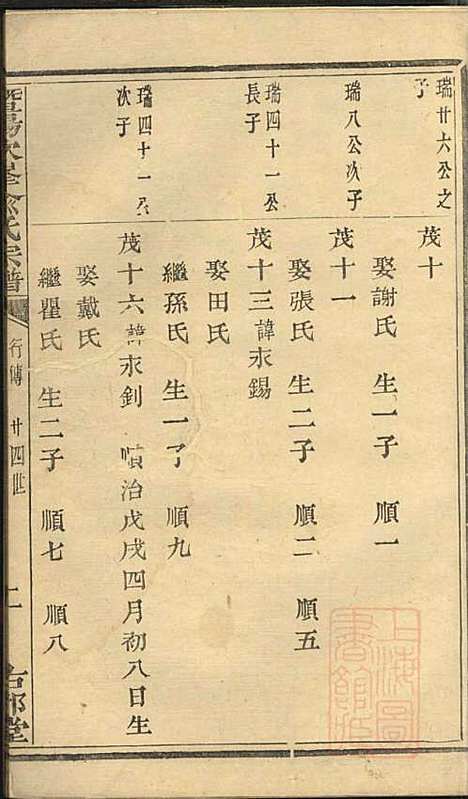 瑞廿六公之
子
茂十
娶謝氏 生一子 順一
瑞八公次子
茂十一
娶張氏 生二子 順二 順五
瑞四十一公
長子
茂十三諱永錫
娶田氏
繼孫氏 生一子 順九
瑞四十一公
次子
茂十六諱永釗 順治戊戌四月初八日生
娶戴氏
繼瞿氏 生二子 順七 順八
暨陽次峯俞氏宗譜
行傳 廿四世
二
上海圖
書館